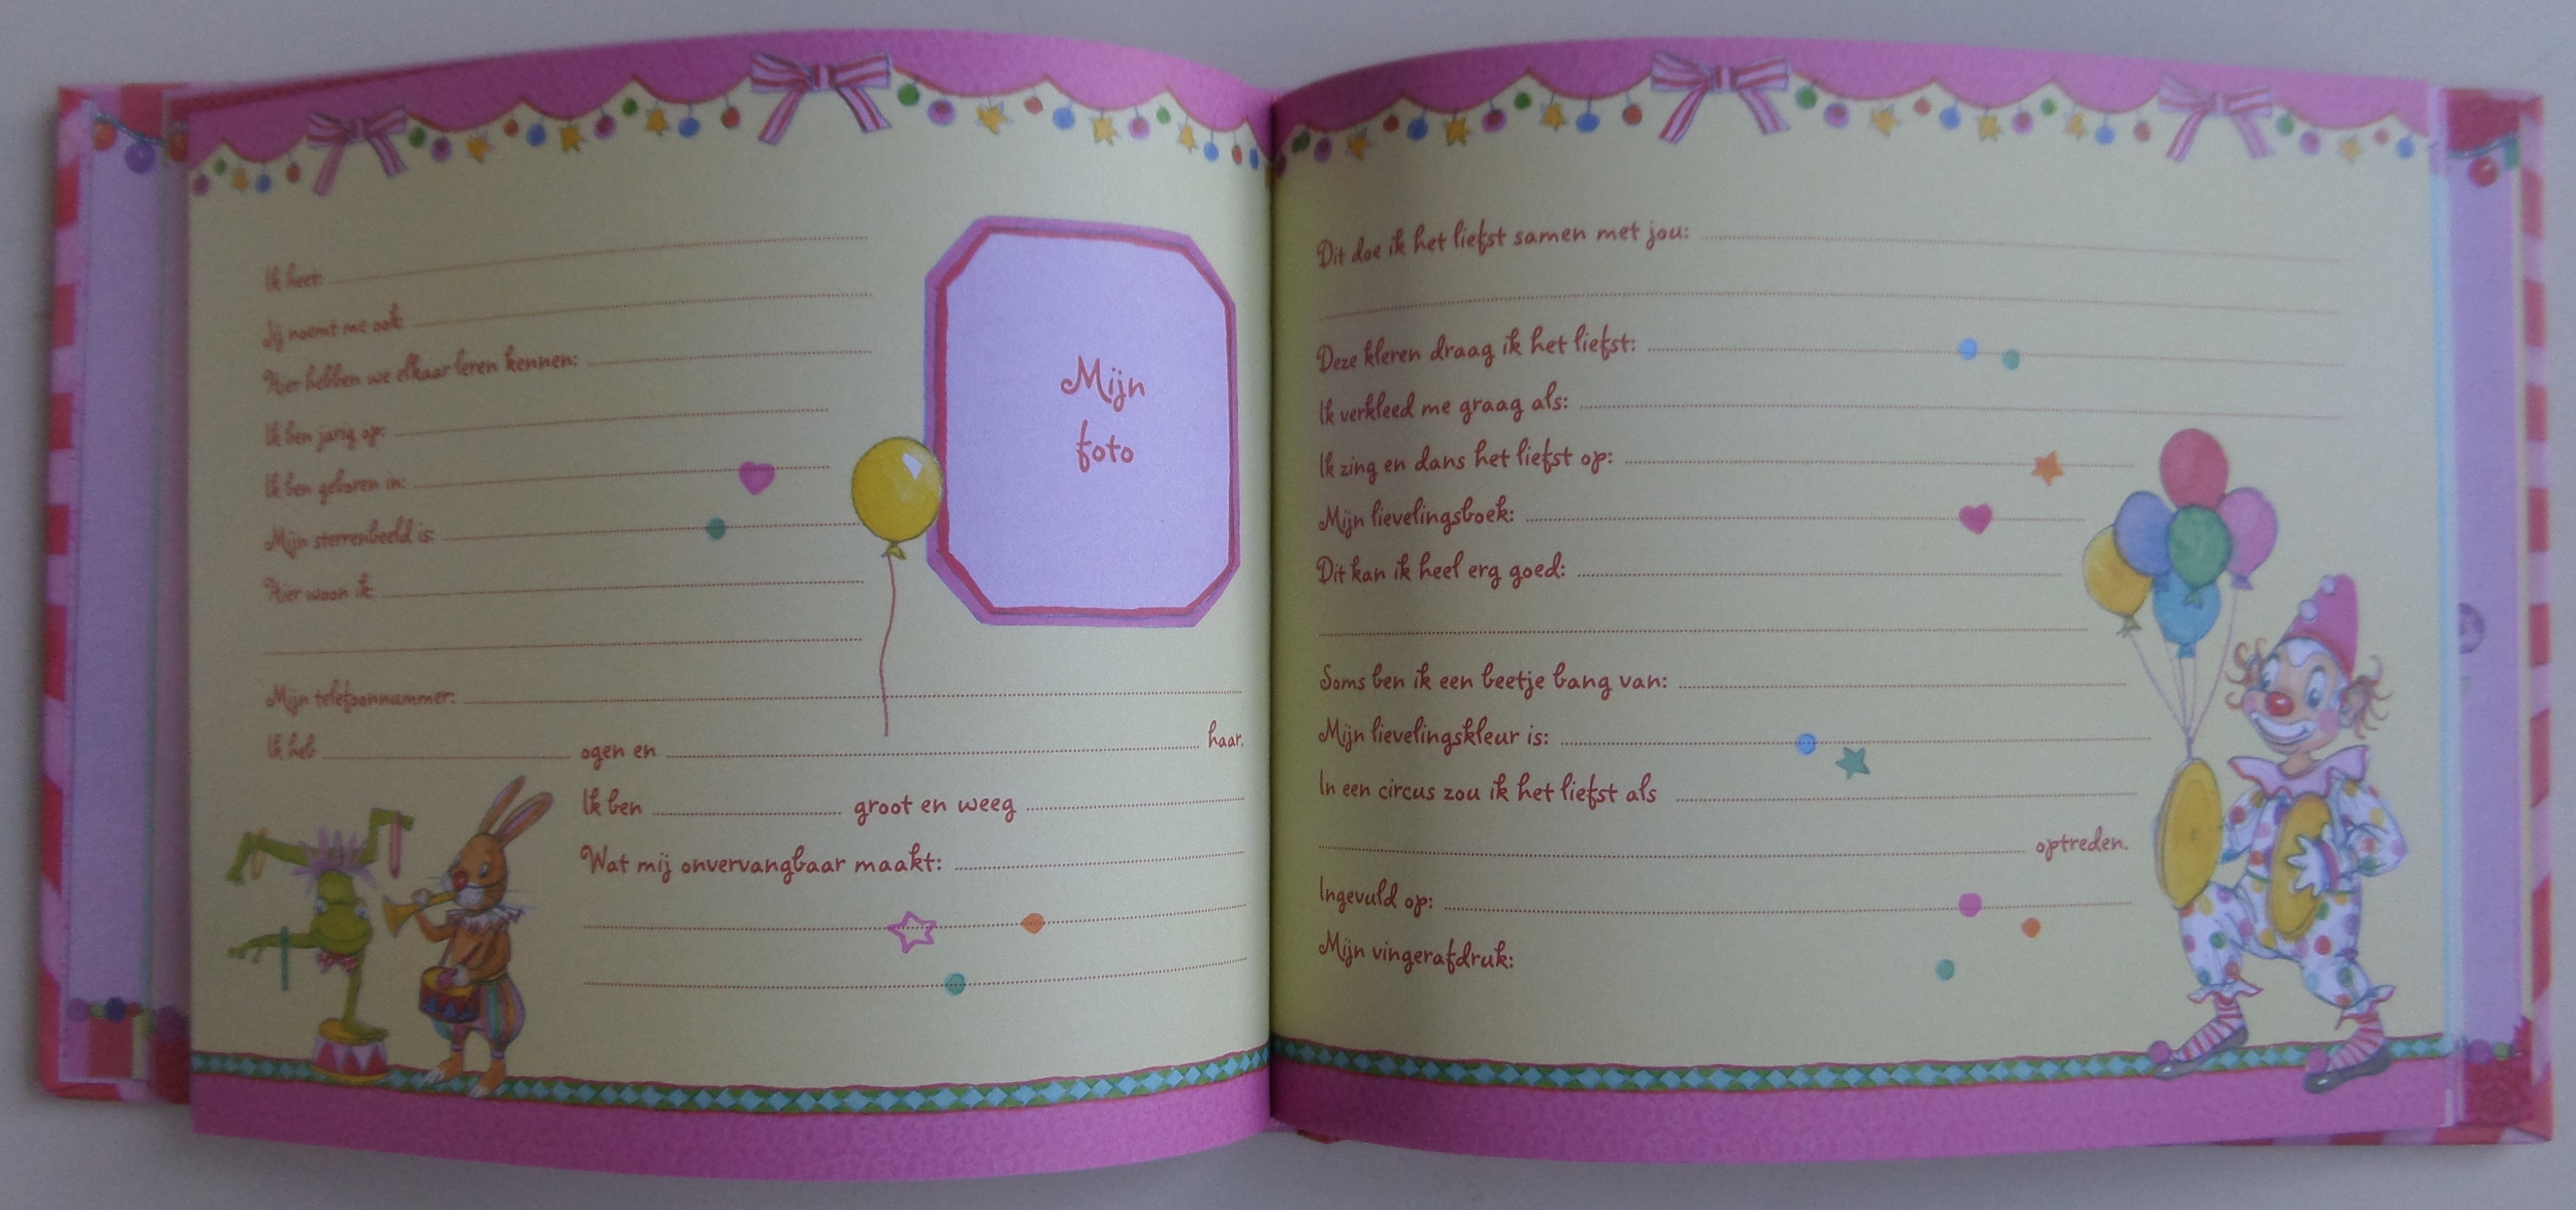 Ik heet:
Jij noemt me ook:
Hier hebben we elkaar leren kennen:
Ik ben jarig op:
Ik ben geboren in:
Mijn sterrenbeeld is:
Hier woon ik:
Mijn telefoonnummer:
Ik heb ogen en haar.
Ik ben groot en weeg
Wat mij onvervangbaar maakt:
Mijn
foto
Dit doe ik het liefst samen met jou:
Deze kleren draag ik het liefst:
Ik verkleed me graag als:
Ik zing en dans het liefst op:
Mijn lievelingsboek:
Dit kan ik heel erg goed:
Soms ben ik een beetje bang van:
Mijn lievelingskleur is:
In een circus zou ik het liefst als
optreden.
Ingevuld op:
Mijn vingerafdruk: